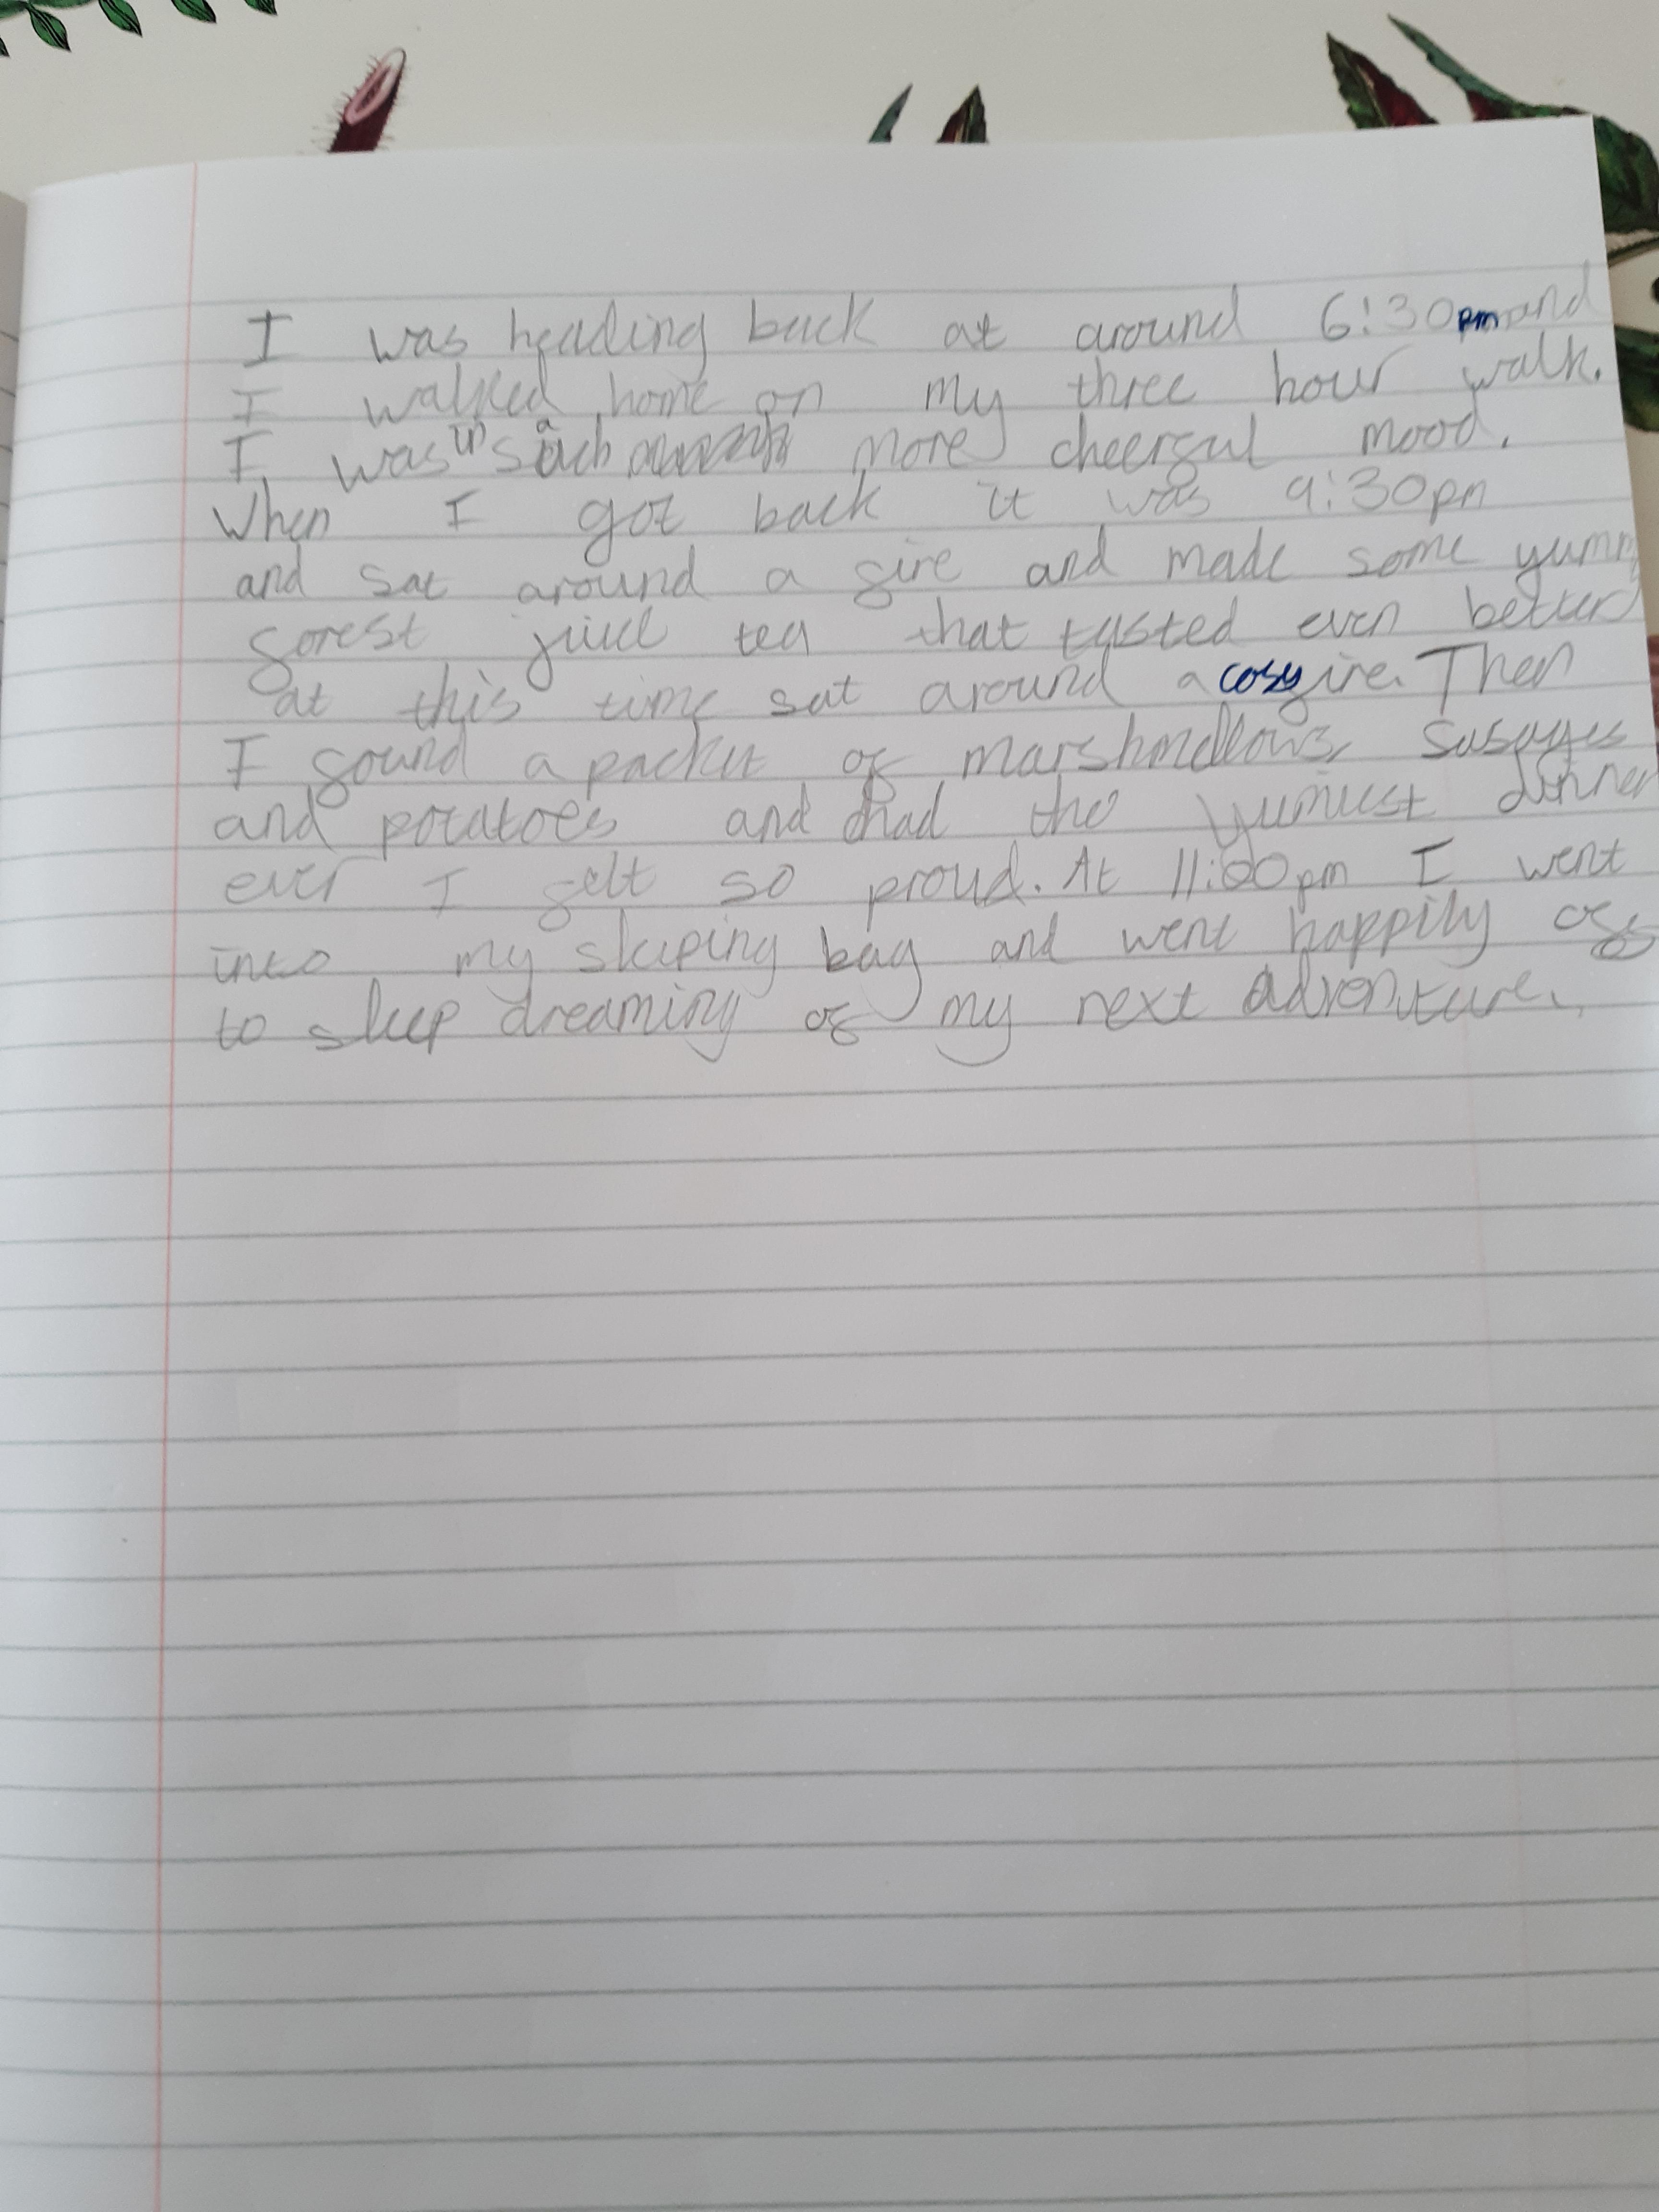 I was heading back at around 6:30pm and
I walked home on my three hour walk.
I was in such a more cheerful mood.
When I got back it was 9:30pm
and sat around a fire and made some yummy
forest juice tea that tasted even better
at this time sat around a cosy fire. Then
I found a packet of marshmellows, susages
and potatoes and had the yumiest dinner
ever I felt so proud. At 11:00pm I went
into my sleeping bag and went happily off
to sleep dreaming of my next adventure.